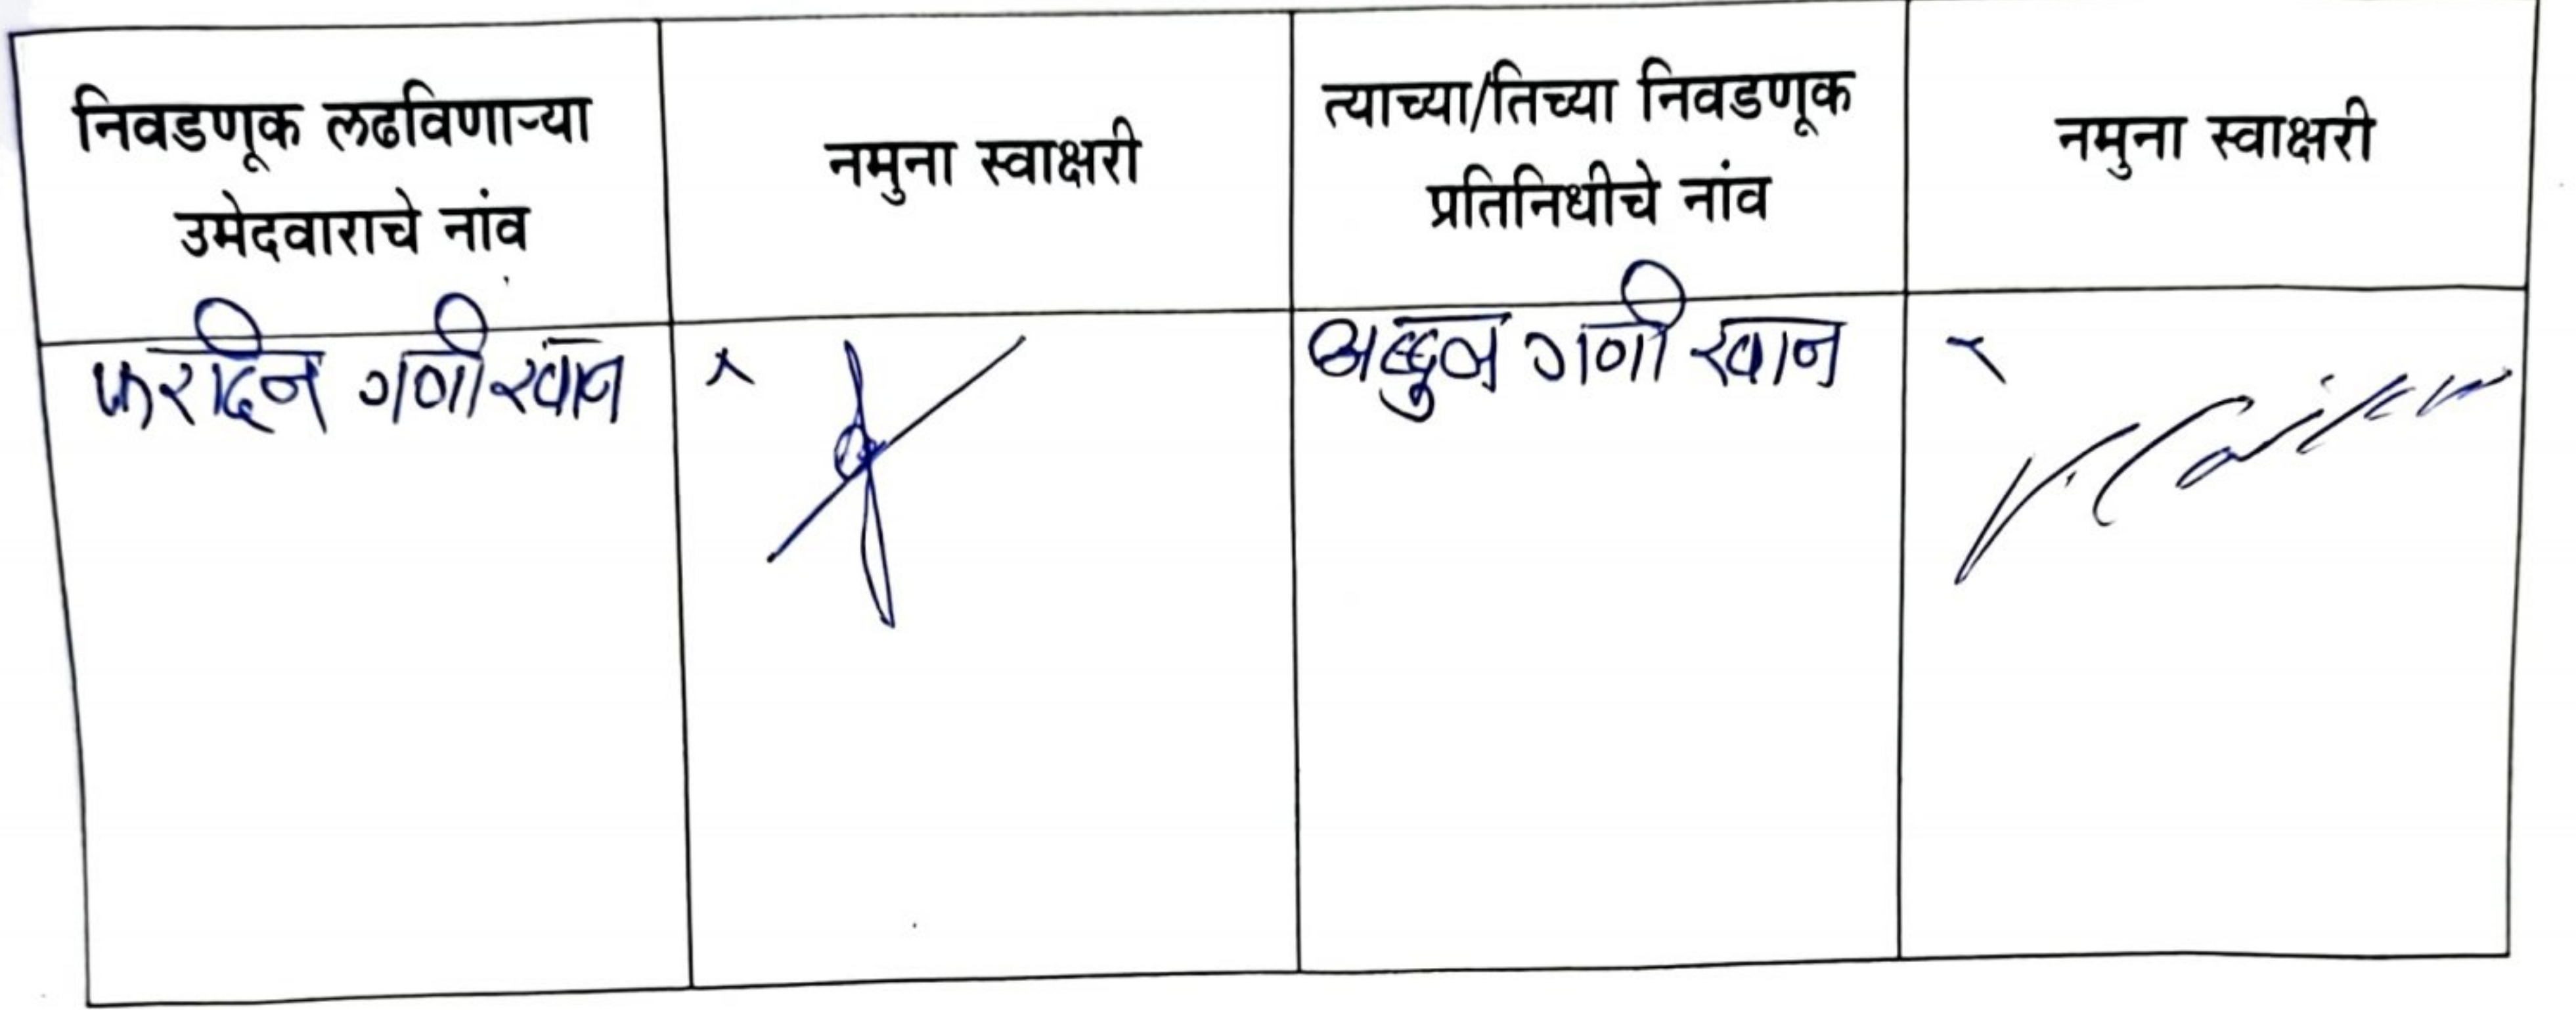 निवडणूक लढविणाऱ्या
उमेदवाराचे नांव
नमुना स्वाक्षरी
त्याच्या/तिच्या निवडणूक
प्रतिनिधीचे नांव
नमुना स्वाक्षरी
फरदिन गणी खान
अब्दुल गणी खान